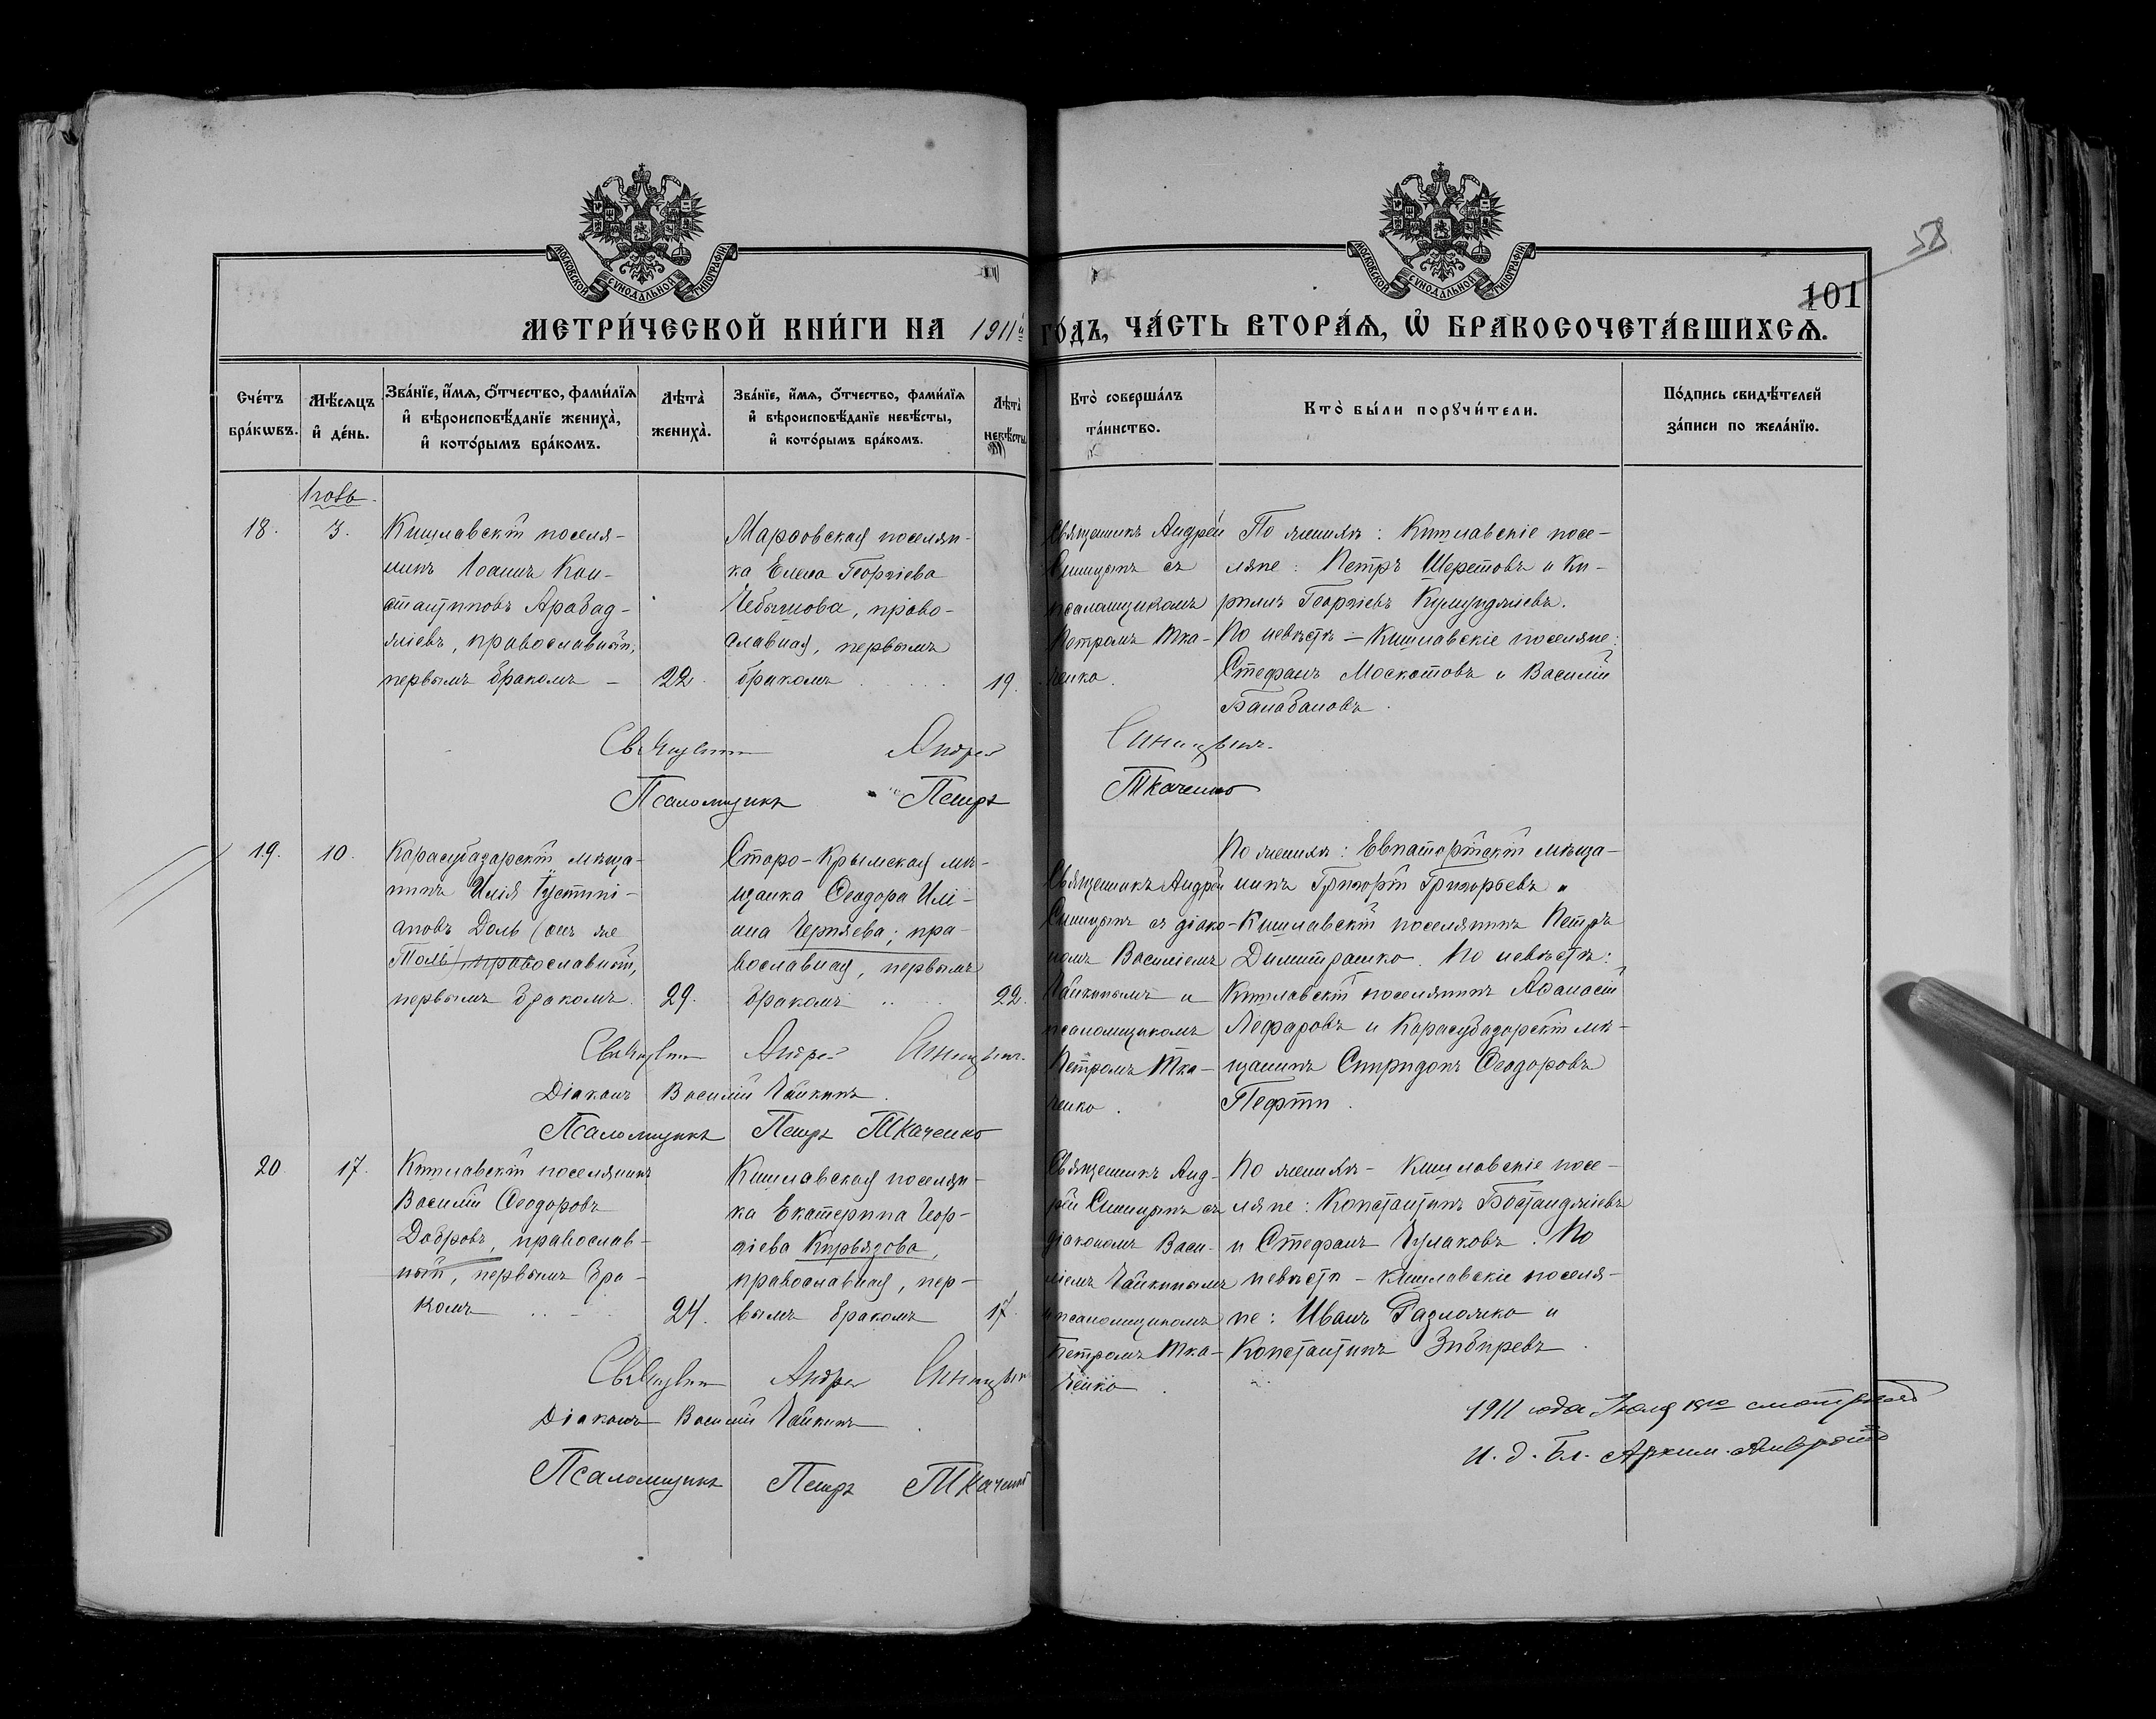 МОСКОВСКОЙ СѴНОДАЛЬНОЙ ТИПОГРАФІИ
МОСКОВСКОЙ СѴНОДАЛЬНОЙ ТИПОГРАФІИ
58
101
МЕТРИ́ЧЕСКОЙ КНИ́ГИ НА 1911й ГО́ДЪ, ЧА́СТЬ ВТОРА́Ѧ, Ѽ БРАКОСОЧЕТА́ВШИХСѦ.
Сче́тъ бра́кѡвъ.
Мѣ́сѧцъ и҆ де́нь.
Зва́нїе, и҆́мѧ, ѻ҆́тчество, фами́лїѧ
и҆ вѣроисповѣ́данїе женихà,
и҆ кото́рымъ бра́комъ.
Лѣтà женихà.
Зва́нїе, и҆́мѧ, ѻ҆́тчество, фами́лїѧ
и҆ вѣроисповѣ́данїе невѣ́сты,
и҆ кото́рымъ бра́комъ.
Лѣтà невѣ́сты
Ктò соверша́лъ
та́инство.
Ктò бы́ли порꙋчи́тели.
По́дпись свидѣ́телей
за́писи по жела́нїю.
18.
3.
Кишлавскій поселя-
нинъ Іоаннъ Кон-
стантиновъ Арабад-
жіевъ, православный,
первымъ бракомъ –
22.
Марѳовская поселян-
ка Елена Георгіева
Чебышова, право-
славная, первымъ
бракомъ
19.
Священникъ Андрей
Синицынъ съ
псаломщикомъ
Петромъ Тка-
ченко.
По женихѣ: Кишлавскіе посе-
ляне: Петръ Шеретовъ и Ки-
риллъ Георгіевъ Куюунджіевъ.
По невѣстѣ – Кишлавскіе поселяне:
Стефанъ Москатовъ и Василій
Балабановъ.
Священникъ Андрей Синицынъ.
Псаломщикъ Петръ Ткаченко
19.
10.
Карасубазарскій мѣща-
нинъ Илія Іустині-
ановъ Доль (онъ же
Толь) православный,
первымъ бракомъ.
29.
Старо-Крымская мѣ-
щанка Ѳеодора Илі-
ина Черняева; пра-
вославная, первымъ
бракомъ
22.
Священникъ Андрей
Синицынъ съ діако-
номъ Василіемъ
Чайкинымъ и
псаломщикомъ
Петромъ Тка-
ченко.
По женихѣ: Евпаторійскій мѣща-
нинъ Григорій Григорьевъ и
Кишлавскій поселянинъ Петръ
Димитрашко. По невѣстѣ:
Кишлавскій поселянинъ Аѳанасій
Лефаровъ и Карасубазарскій мѣ-
щанинъ Спиридонъ Ѳеодоровъ
Пефти.
Священникъ Андрей Синицынъ.
Діаконъ Василій Чайкинъ.
Псаломщикъ Петръ Ткаченко
20
17.
Кишлавскій поселянинъ
Василій Ѳеодоровъ
Добровъ, православ-
ный, первымъ бра-
комъ
24.
Кишлавская поселян-
ка Екатерина Геор-
гіева Кирьязова,
православная, пер-
вымъ бракомъ
17.
Священникъ Анд-
рей Синицынъ съ
діакономъ Васи-
ліемъ Чайкинымъ
и псаломщикомъ
Петромъ Тка-
ченко.
По женихѣ – Кишлавскіе посе-
ляне: Константинъ Бостанджіевъ
и Стефанъ Чулаковъ. По
невѣстѣ – Кишлавскіе поселя-
не: Иванъ Разложко и
Константинъ Зибиревъ.
Священникъ Андрей Синицын
Діаконъ Василій Чайкинъ
Псаломщикъ Петръ Ткаченко
1911 года Іюля
И. д. Бл. Архим.